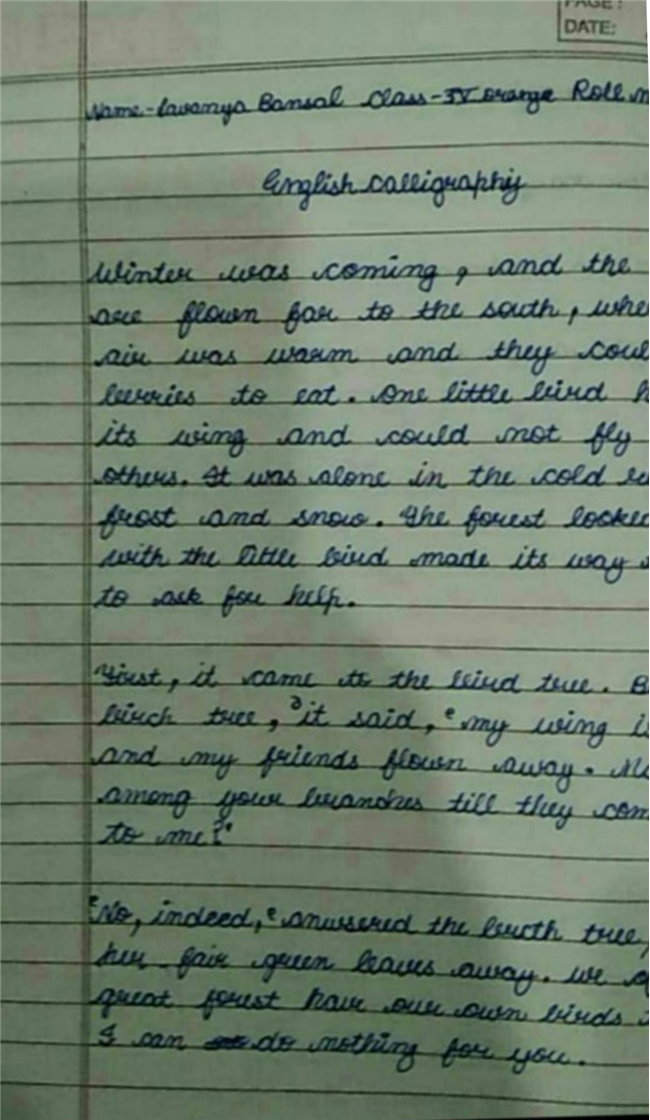 PAGE:
DATE:
Name-Lavanya Bansal Class-IV orange Roll n
English calligraphy
Winter was coming, and the
are flown far to the south, whe
air was warm and they coul
berries to eat. One little bird h
its wing and could not fly
others. It was alone in the cold
frost and snow. The forest looked
with the little bird made its way
to ask for help.
First, it came to the bird tree. B
birch tree, "it said, "my wing is
and my friends flown away. Ma
among your branches till they com
to me?"
"No, indeed," answered the tree,
her fair green leaves away. we of
great forest have our own birds
I can do nothing for you.